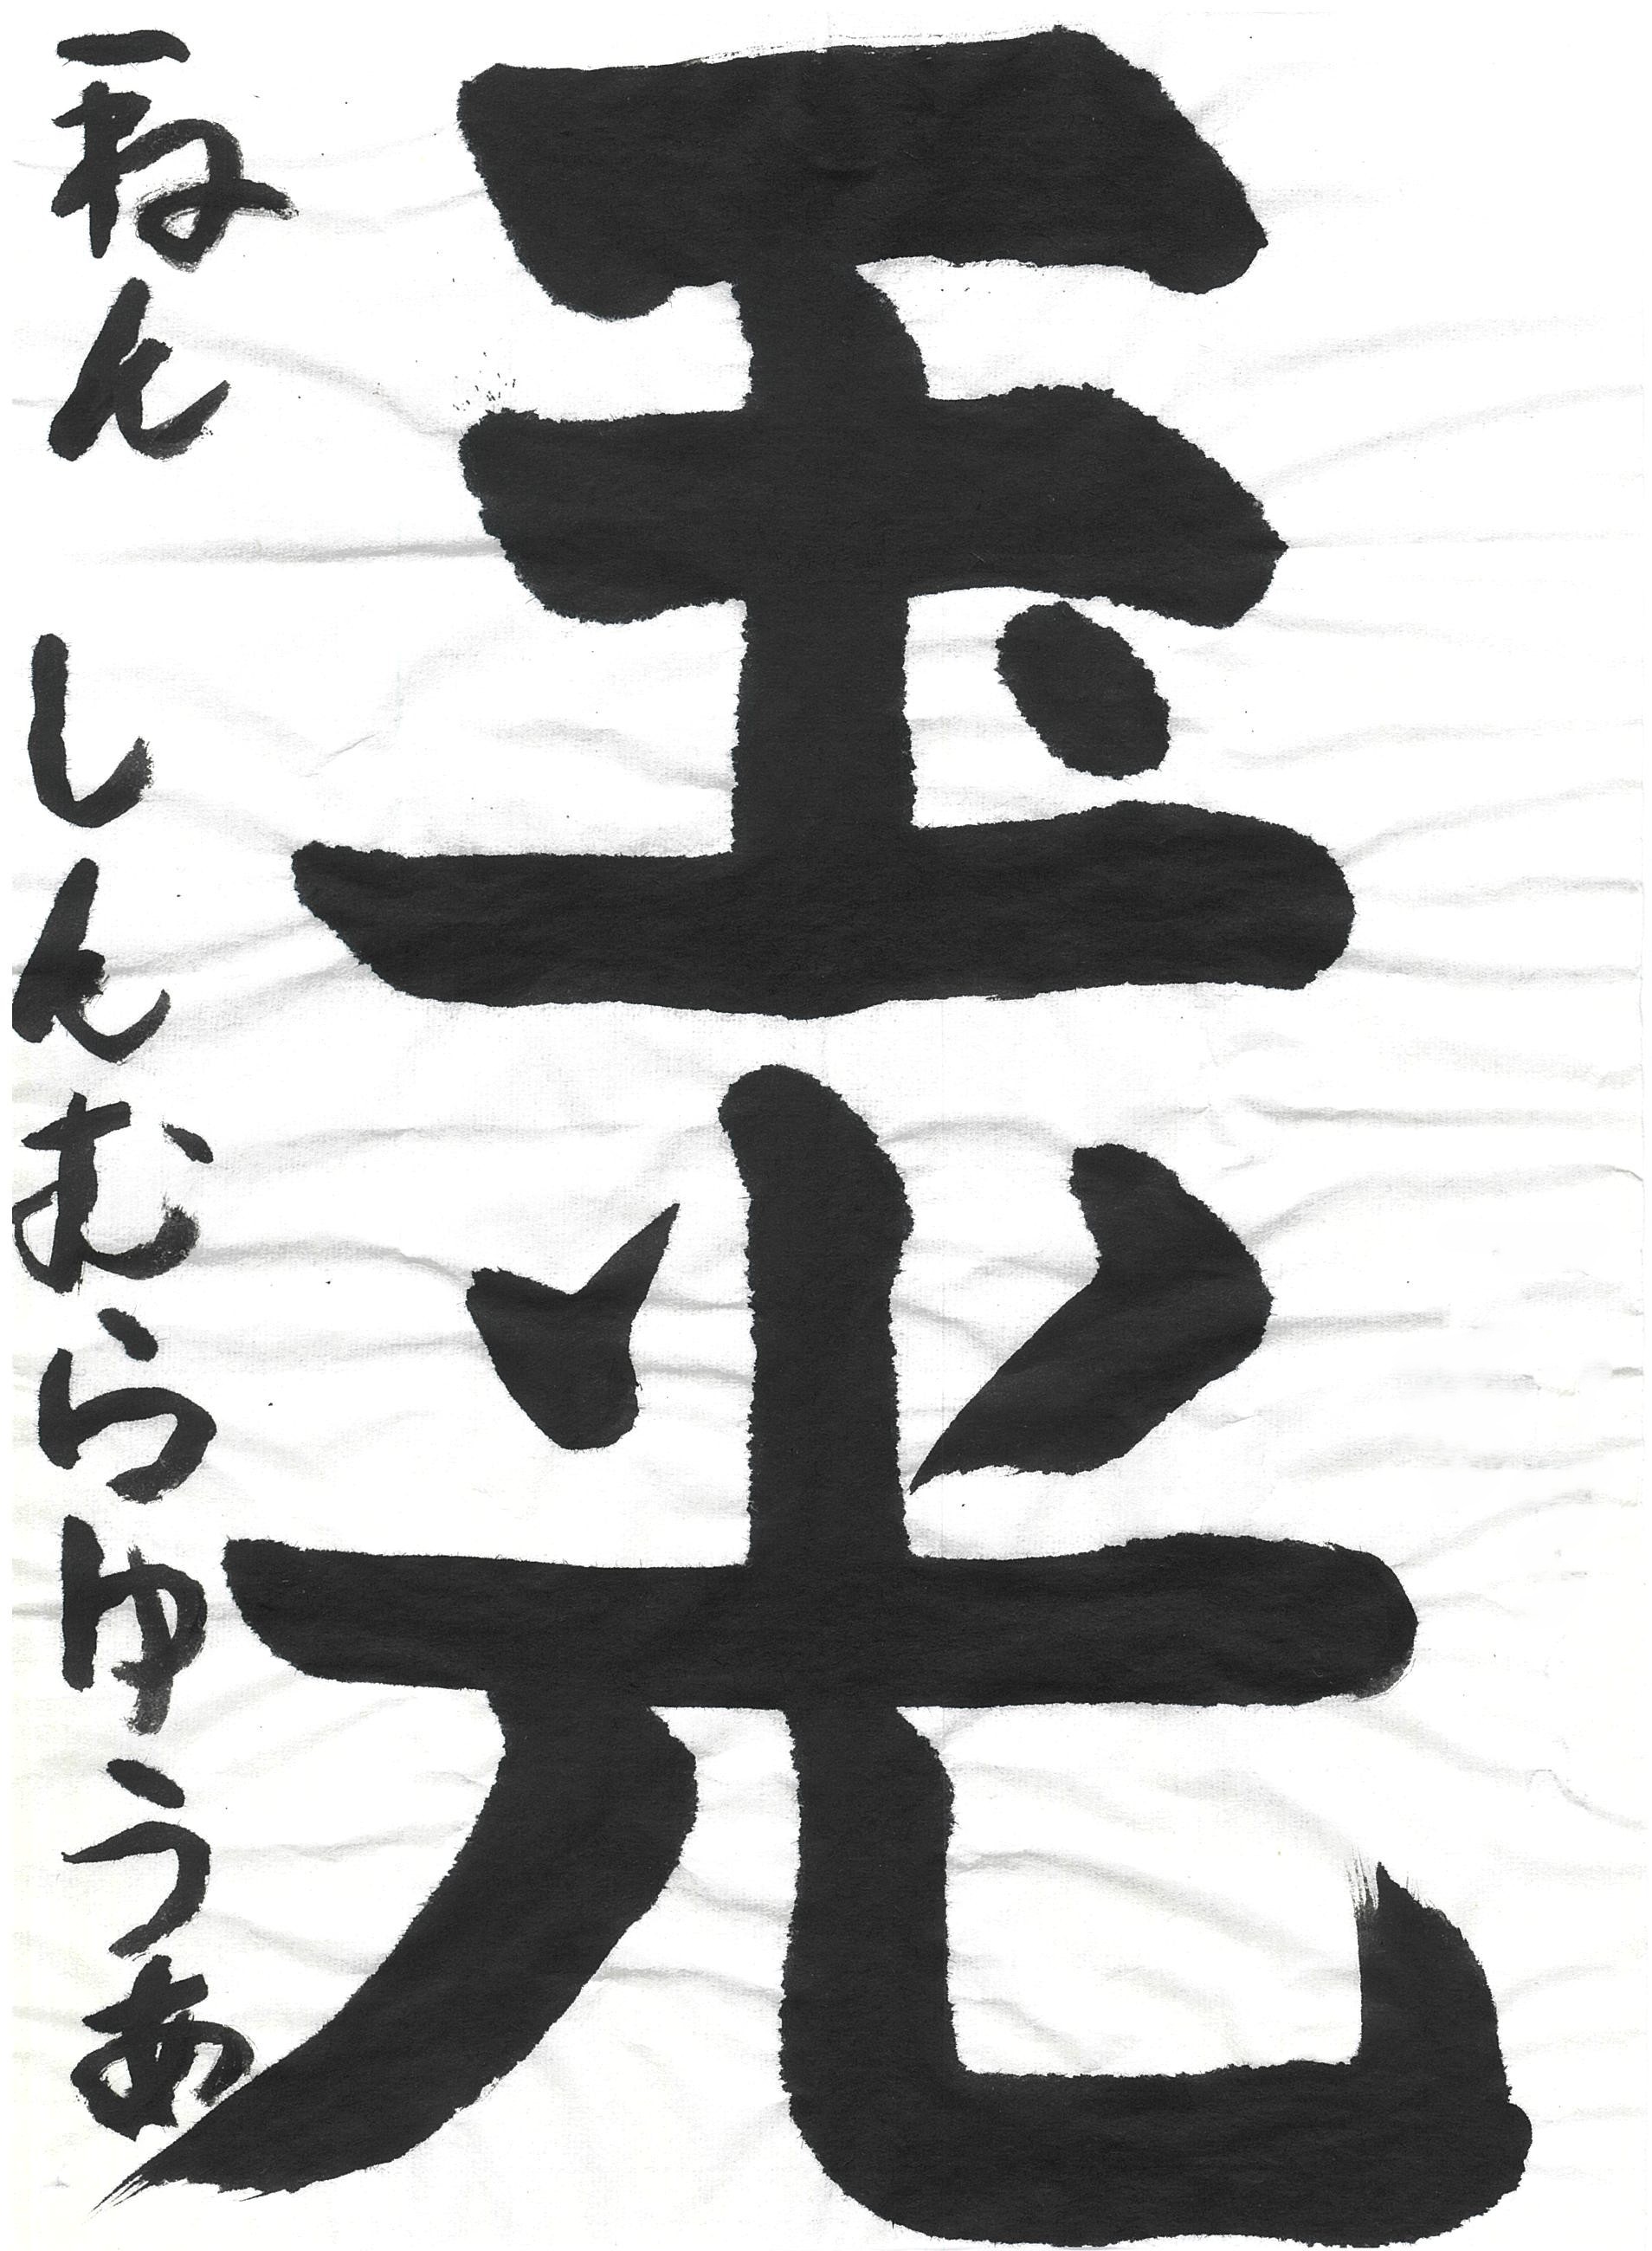 玉光
一ねん しんむらゆうあ